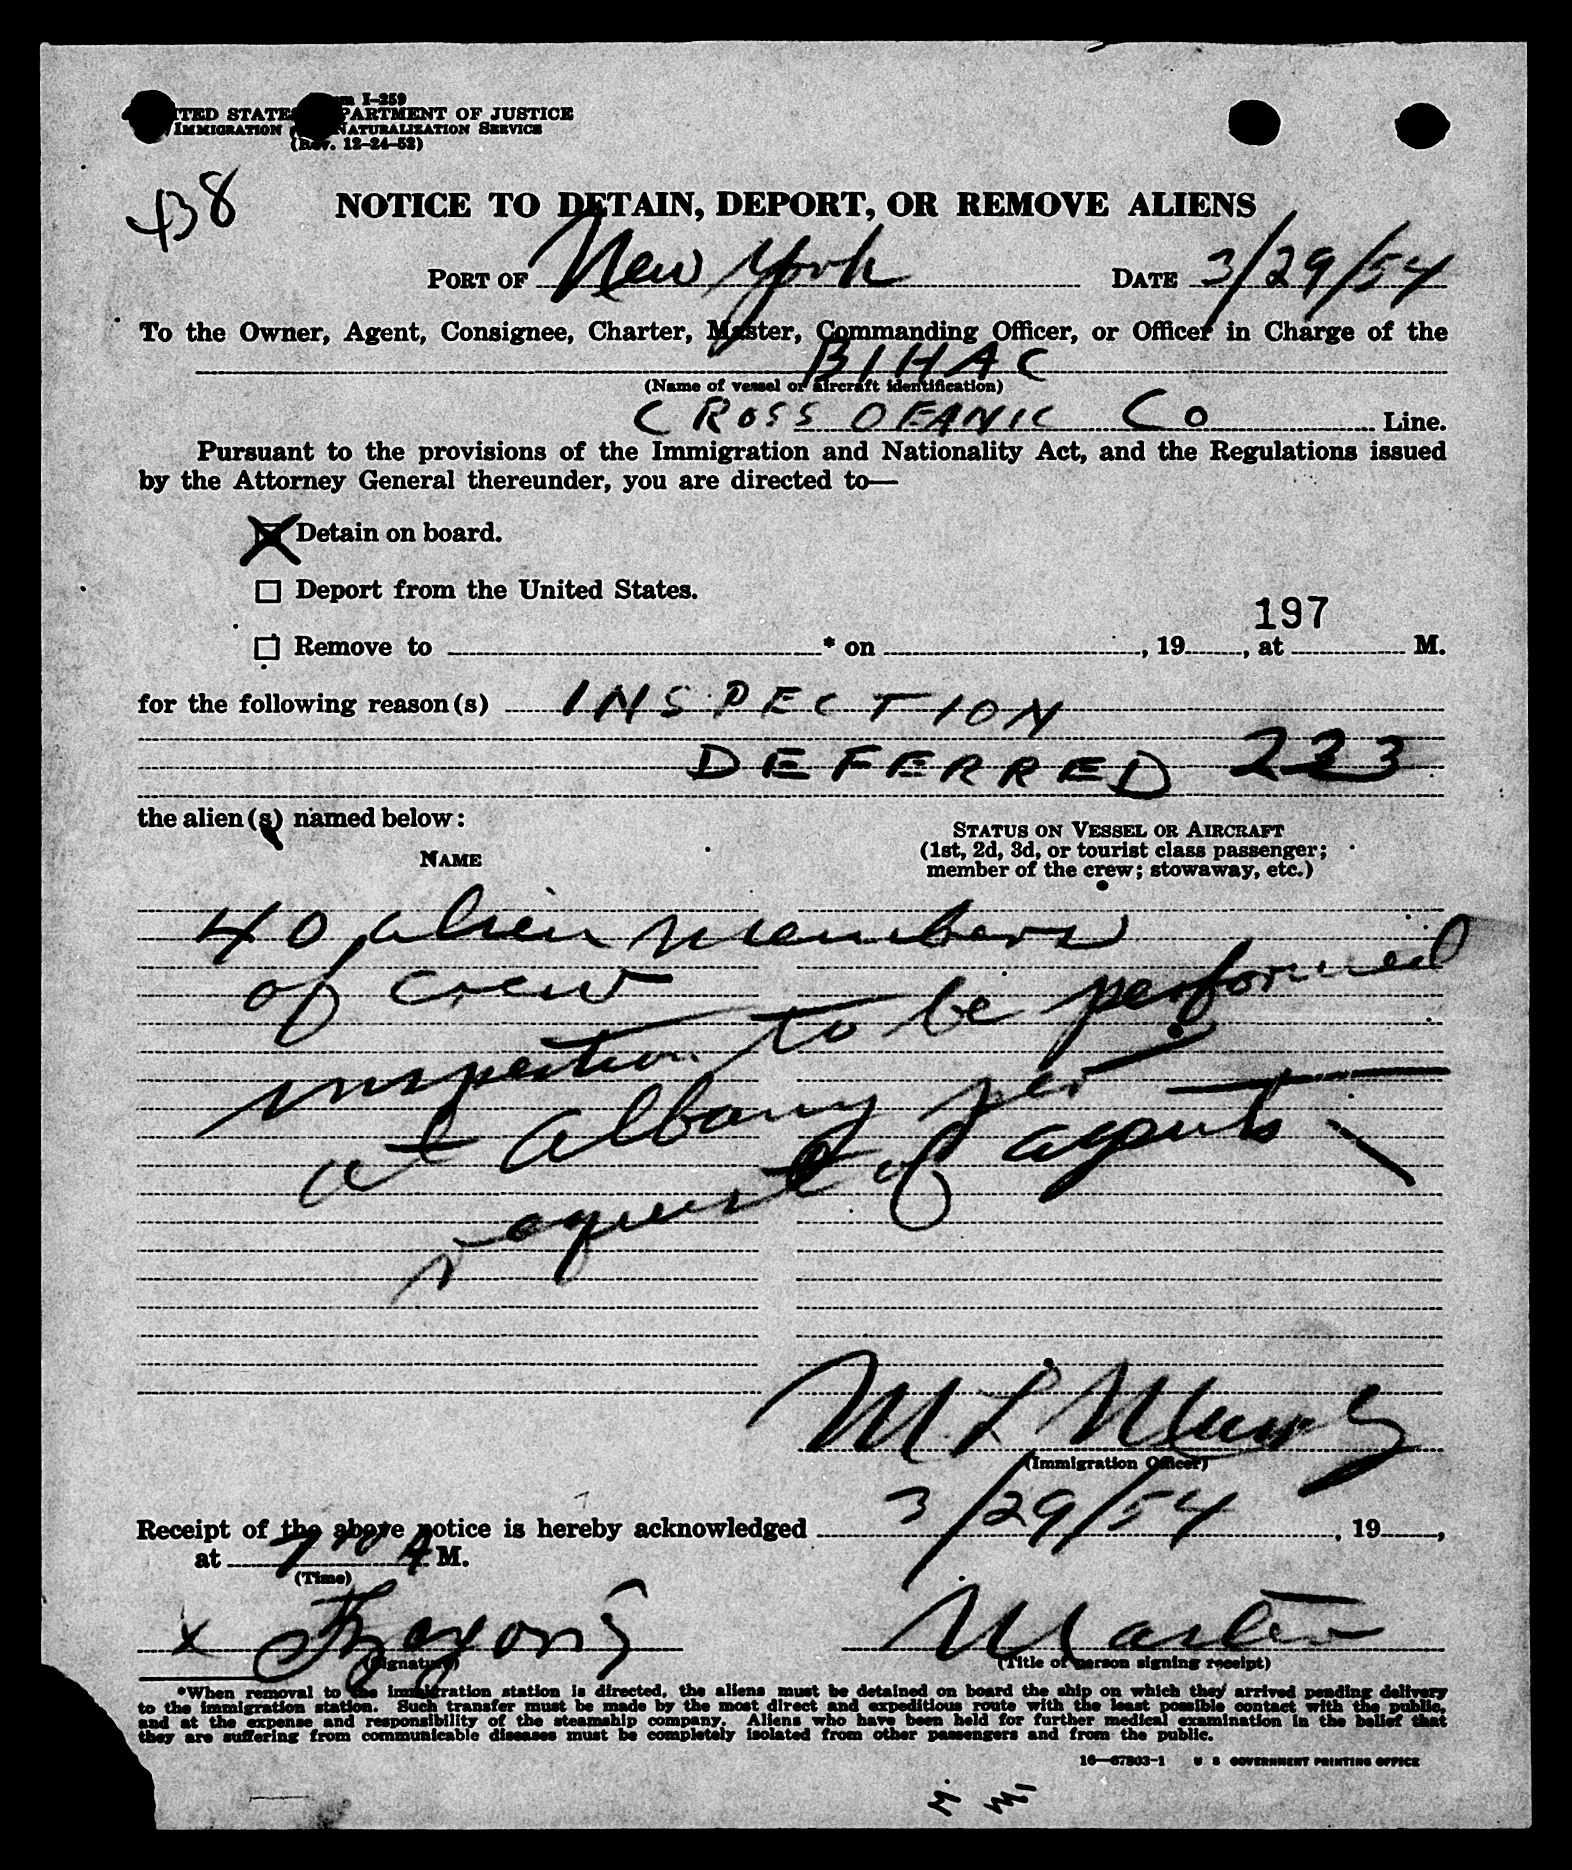 Form I-259
UNITED STATES DEPARTMENT OF JUSTICE
IMMIGRATION AND NATURALIZATION SERVICE
(Rev. 12-24-52)
B8
NOTICE TO DETAIN, DEPORT, OR REMOVE ALIENS
PORT OF New York DATE 3/29/54
To the Owner, Agent, Consignee, Charter, Master, Commanding Officer, or Officer in Charge of the
BIHAC
(Name of vessel or aircraft identification)
CROSS OEANIC CO Line.
Pursuant to the provisions of the Immigration and Nationality Act, and the Regulations issued
by the Attorney General thereunder, you are directed to—
Detain on board.
Deport from the United States.
197
Remove to * on , 19 , at M.
for the following reason(s) INSPECTION
DEFERRED 223
the alien(s) named below:
NAME
STATUS ON VESSEL OR AIRCRAFT
(1st, 2d, 3d, or tourist class passenger;
member of the crew; stowaway, etc.)
40 alien members
of crew
inspection to be performed
at Albany per
request of agents
M L
(Immigration Officer)
Receipt of the above notice is hereby acknowledged 3/29/54, 19 ,
at 7 A M.
(Time)
X
(Signature)
Master
(Title of person signing receipt)
*When removal to the immigration station is directed, the aliens must be detained on board the ship on which they arrived pending delivery
to the immigration station. Such transfer must be made by the most direct and expeditious route with the least possible contact with the public,
and at the expense and responsibility of the steamship company. Aliens who have been held for further medical examination in the belief that
they are suffering from communicable diseases must be completely isolated from other passengers and from the public.
16—67803-1 U S GOVERNMENT PRINTING OFFICE